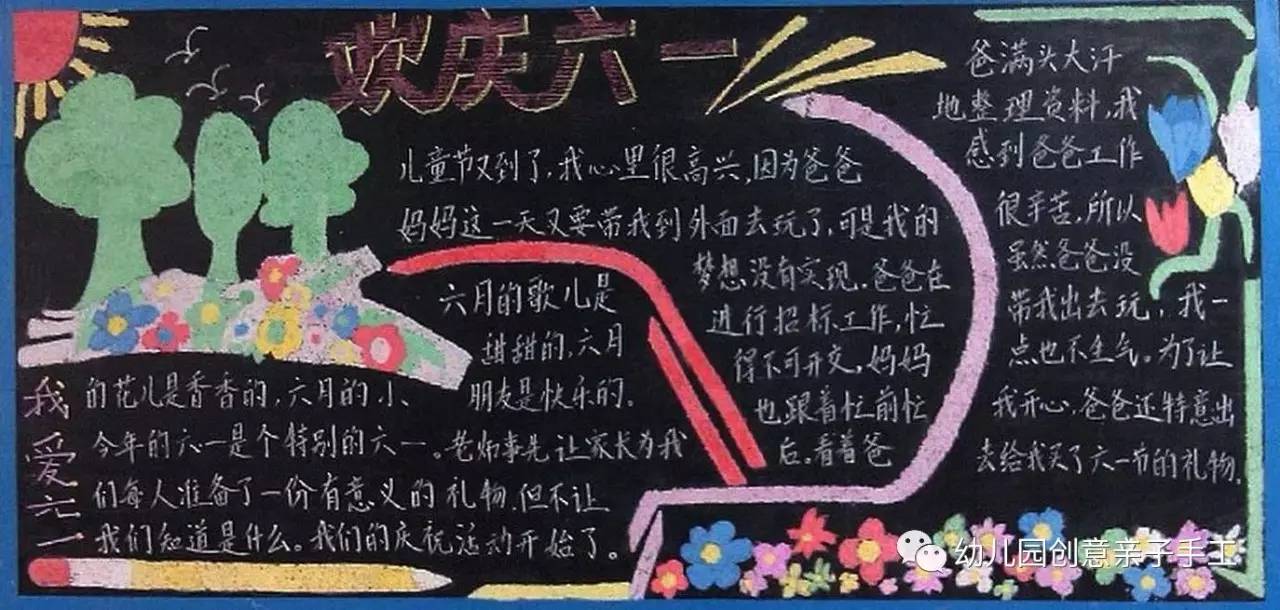 欢庆六一
儿童节又到了,我心里很高兴,因为爸爸
妈妈这一天又要带我到外面去玩了,可是我的
梦想没有实现。爸爸在
进行招标工作,忙
得不可开交,妈妈
也跟着忙前忙
后。看着爸
爸满头大汗
地整理资料,我
感到爸爸工作
很辛苦,所以
虽然爸爸没
带我出去玩,我一
点也不生气。为了让
我开心,爸爸还特意出
去给我买了六一节的礼物。
我爱六一
六月的歌儿是
甜甜的,六月
的花儿是香香的,六月的小、
朋友是快乐的。
今年的六一是个特别的六一。老师事先让家长为我
们每人准备了一份有意义的礼物,但不让
我们知道是什么。我们的庆祝活动开始了。
幼儿园创意亲子手工